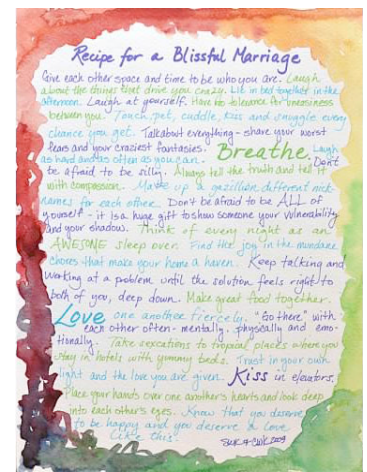 Recipe for a Blissful Marriage
Give each other space and time to be who you are. Laugh
about the things that drive you crazy. Lie in bed together in the
afternoon. Laugh at yourself. Have no tolerance for uneasiness
between you. Touch, pet, cuddle, kiss and snuggle every
chance you get. Talk about everything - share your worst
fears and your craziest fantasies. Breathe. Laugh
as hard and as often as you can. Don't
be afraid to be silly. Always tell the truth and tell it
with compassion. Made up a gezillion different nick-
names for each other. Don't be afraid to be ALL of
yourself - it is a huge gift to show someone your vulnerability
and your shadow. Think of every night as an
AWESOME sleep over. Find the joy in the mundane
chores that make your home a haven. Keep talking and
working at a problem until the solution feels right to
both of you, deep down. Make great food together.
Love one another fiercely. "Go there" with
each other often - mentally, physically and emo-
tionally. Take sexcations to tropical places where you
stay in hotels with yummy beds. Trust in your own
light and the love you are given. Kiss in elevators.
Place your hands over one another's hearts and look deep
into each other's eyes. Know that you deserve
to be happy and you deserve a love
like this.
2009